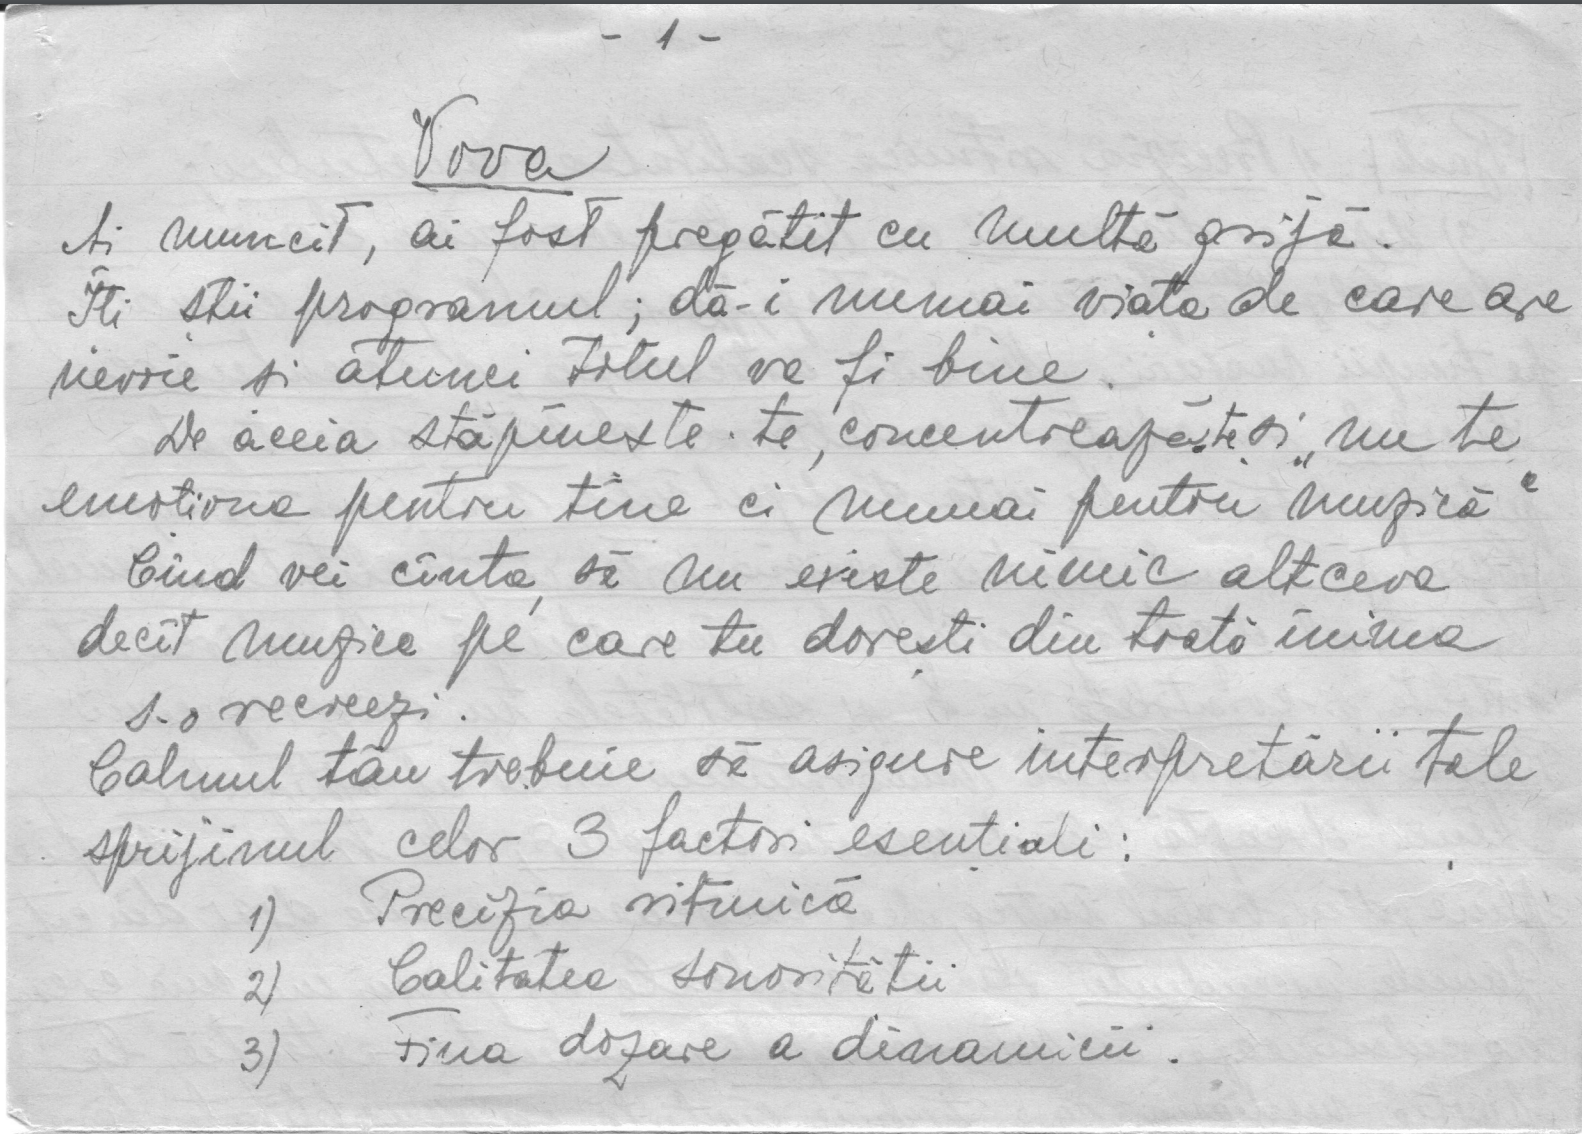 - 1 -
Vova
Ai muncit, ai fost pregătit cu multă grijă.
Îti stii programul; dă-i numai viata de care are
nevoie si atunci totul va fi bine.
De aceia stăpîneste-te, concentreapă-te si „nu te
emotiona pentru tine ci numai pentru muzică“
Cînd vei cînta, să nu existe nimic altceva
decît muzica pe care tu dorești din toată inima
s-o recreezi.
Calmul tău trebuie să asigure interpretării tale
sprijinul celor 3 factori esențiali:
1) Precizia ritmică
2) Calitatea sonorității
3) Fina dozare a dinamicii.